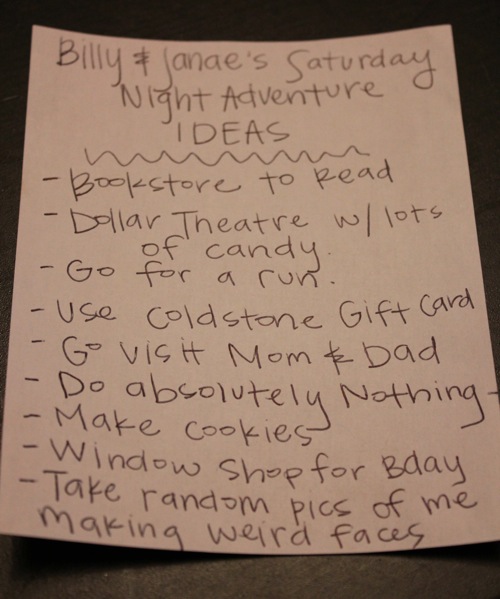 Billy & Janae's Saturday
Night Adventure
IDEAS
- Bookstore to Read
- Dollar Theatre w/ lots
of candy.
- Go for a run.
- Use Coldstone Gift Card
- Go visit Mom & Dad
- Do absolutely Nothing -
- Make cookies
- Window Shop for Bday
- Take random pics of me
making weird faces